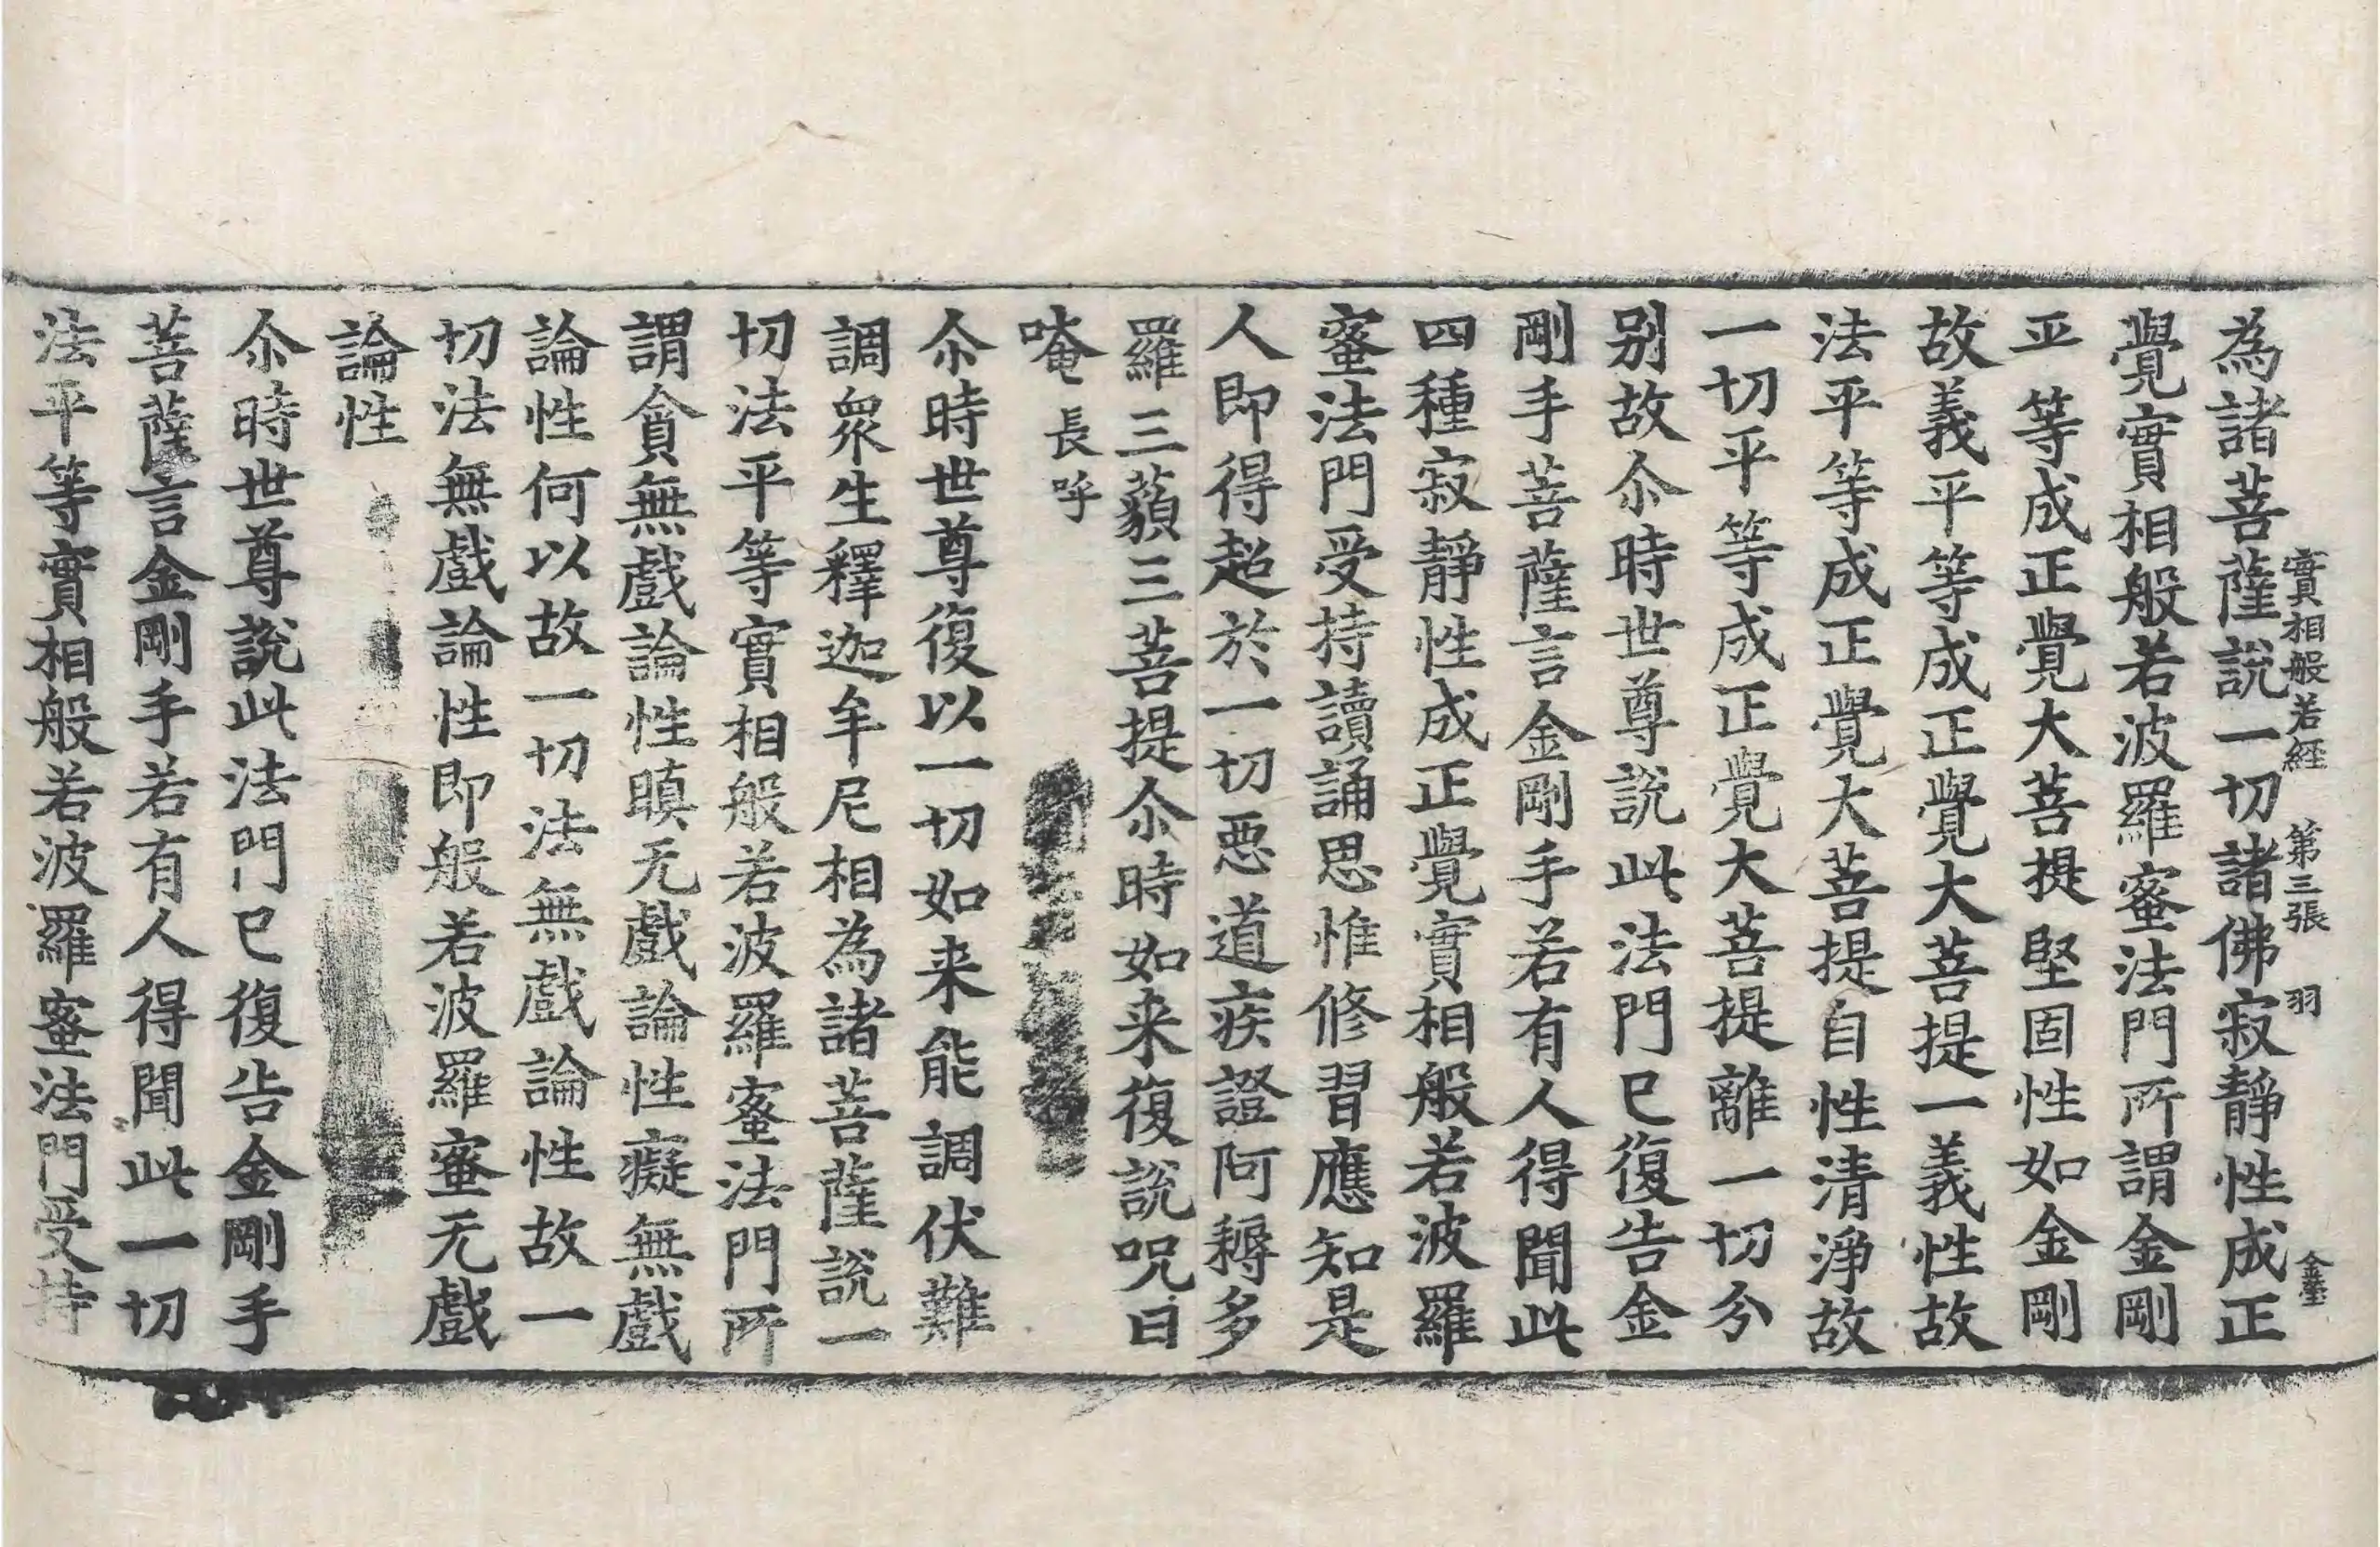 為諸菩薩說一切諸佛寂靜性成正
實相般若経 第三張 羽
覺實相般若波羅蜜法門所謂金剛
平等成正覺大菩提堅固性如金剛
故義平等成正覺大菩提一義性故
法平等成正覺大菩提自性清淨故
一切平等成正覺大菩提離一切分
别故尒時世尊說此法門已復告金
剛手菩薩言金剛手若有人得聞此
四種寂靜性成正覺實相般若波羅
蜜法門受持讀誦思惟修習應知是
人即得超於一切惡道疾證阿耨多
羅三藐三菩提尒時如来復說呪曰
唵長呼
尒時世尊復以一切如来能調伏難
調衆生釋迦牟尼相為諸菩薩說一
切法平等實相般若波羅蜜法門所
謂貪無戲論性瞋无戲論性癡無戲
論性何以故一切法無戲論性故一
切法無戲論性即般若波羅蜜无戲
論性
尒時世尊說此法門已復告金剛手
菩薩言金剛手若有人得聞此一切
法平等實相般若波羅蜜法門受持